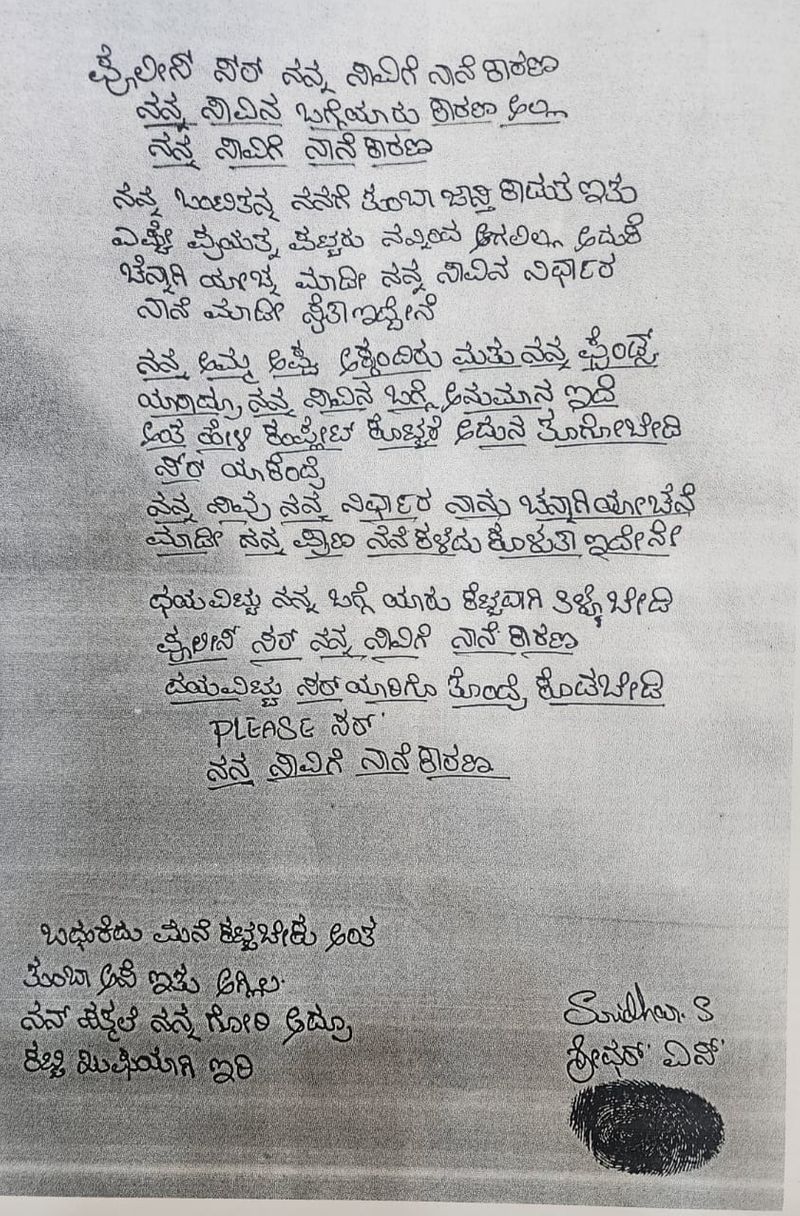 ಪ್ಲೀಸ್ ಸರ್ ನನ್ನ ಸಾವಿಗೆ ನಾನೆ ಕಾರಣ
ನನ್ನ ಸಾವಿನ ಬಗ್ಗೆಯಾರು ಕಾರಣ ಅಲ್ಲ
ನನ್ನ ಸಾವಿಗೆ ನಾನೆ ಕಾರಣ
ನನ್ನ ಒಂಟಿತನ್ನ ನನಗೆ ತುಂಬಾ ಜಾಸ್ತಿ ಕಾಡುತ ಇತು
ಎಷ್ಟೇ ಪ್ರಯತ್ನ ಪಟ್ಟರು ನನ್ನಿಂದ ಆಗಲಿಲ್ಲ ಅದುಕೆ
ಚೆನ್ನಾಗಿ ಯೋಚ್ನ ಮಾಡೀ ನನ್ನ ಸಾವಿನ ನಿರ್ಧಾರ
ನಾನೆ ಮಾಡೀ ಇದ್ದೇನೆ
ನನ್ನ ಅಮ್ಮ ಅಪ್ಪ ಅಕ್ಕಂದಿರು ಮತು ನನ್ನ ಫ್ರೆಂಡ್ಸ್
ಯಾರಾದ್ರೂ ನನ್ನ ಸಾವಿನ ಬಗ್ಗೆ ಅನುಮಾನ ಇದೆ
ಅಂತ ಹೇಳಿ ಕಂಪ್ಲೇಟ್ ಕೊಟ್ಟರೆ ಅದುನ ತಗೋಬೇಡಿ
ಸರ್ ಯಾಕಂದ್ರೆ
ನನ್ನ ಸಾವು ನನ್ನ ನಿರ್ಧಾರ ನಾನು ಚನ್ನಾಗಿಯೋಚನೆ
ಮಾಡೀ ನನ್ನ ಪ್ರಾಣ ನೆನೆ ಕಳೆದು ಕೊಳುತಾ ಇದೇನೇ
ಧಯವಿಟ್ಟು ನನ್ನ ಬಗ್ಗೆ ಯಾರು ಕೆಟ್ಟದಾಗಿ ತಿಳ್ಕೊಬೇಡಿ
ಪ್ಲೀಸ್ ಸರ್ ನನ್ನ ಸಾವಿಗೆ ನಾನೆ ಕಾರಣ
ದಯವಿಟ್ಟು ಸರ್ ಯಾರಿಗೂ ತೊಂದ್ರೆ ಕೊಡಬೇಡಿ
PLEASE ಸರ್
ನನ್ನ ಸಾವಿಗೆ ನಾನೆ ಕಾರಣ
ಬಧುಕಿದು ಮನೆ ಕಟ್ಟಬೇಕು ಅಂತ
ತುಂಬಾ ಆಸೆ ಇತು ಆಗ್ಲಿಲ್ಲ
ನನ್ ಪಕ್ಕಲೆ ನನ್ನ ಗೋರಿ ಆದ್ರೂ
ಕಟ್ಟಿ ಖುಷಿಯಾಗಿ ಇರಿ
ಶ್ರೀಧರ್ ಎಸ್